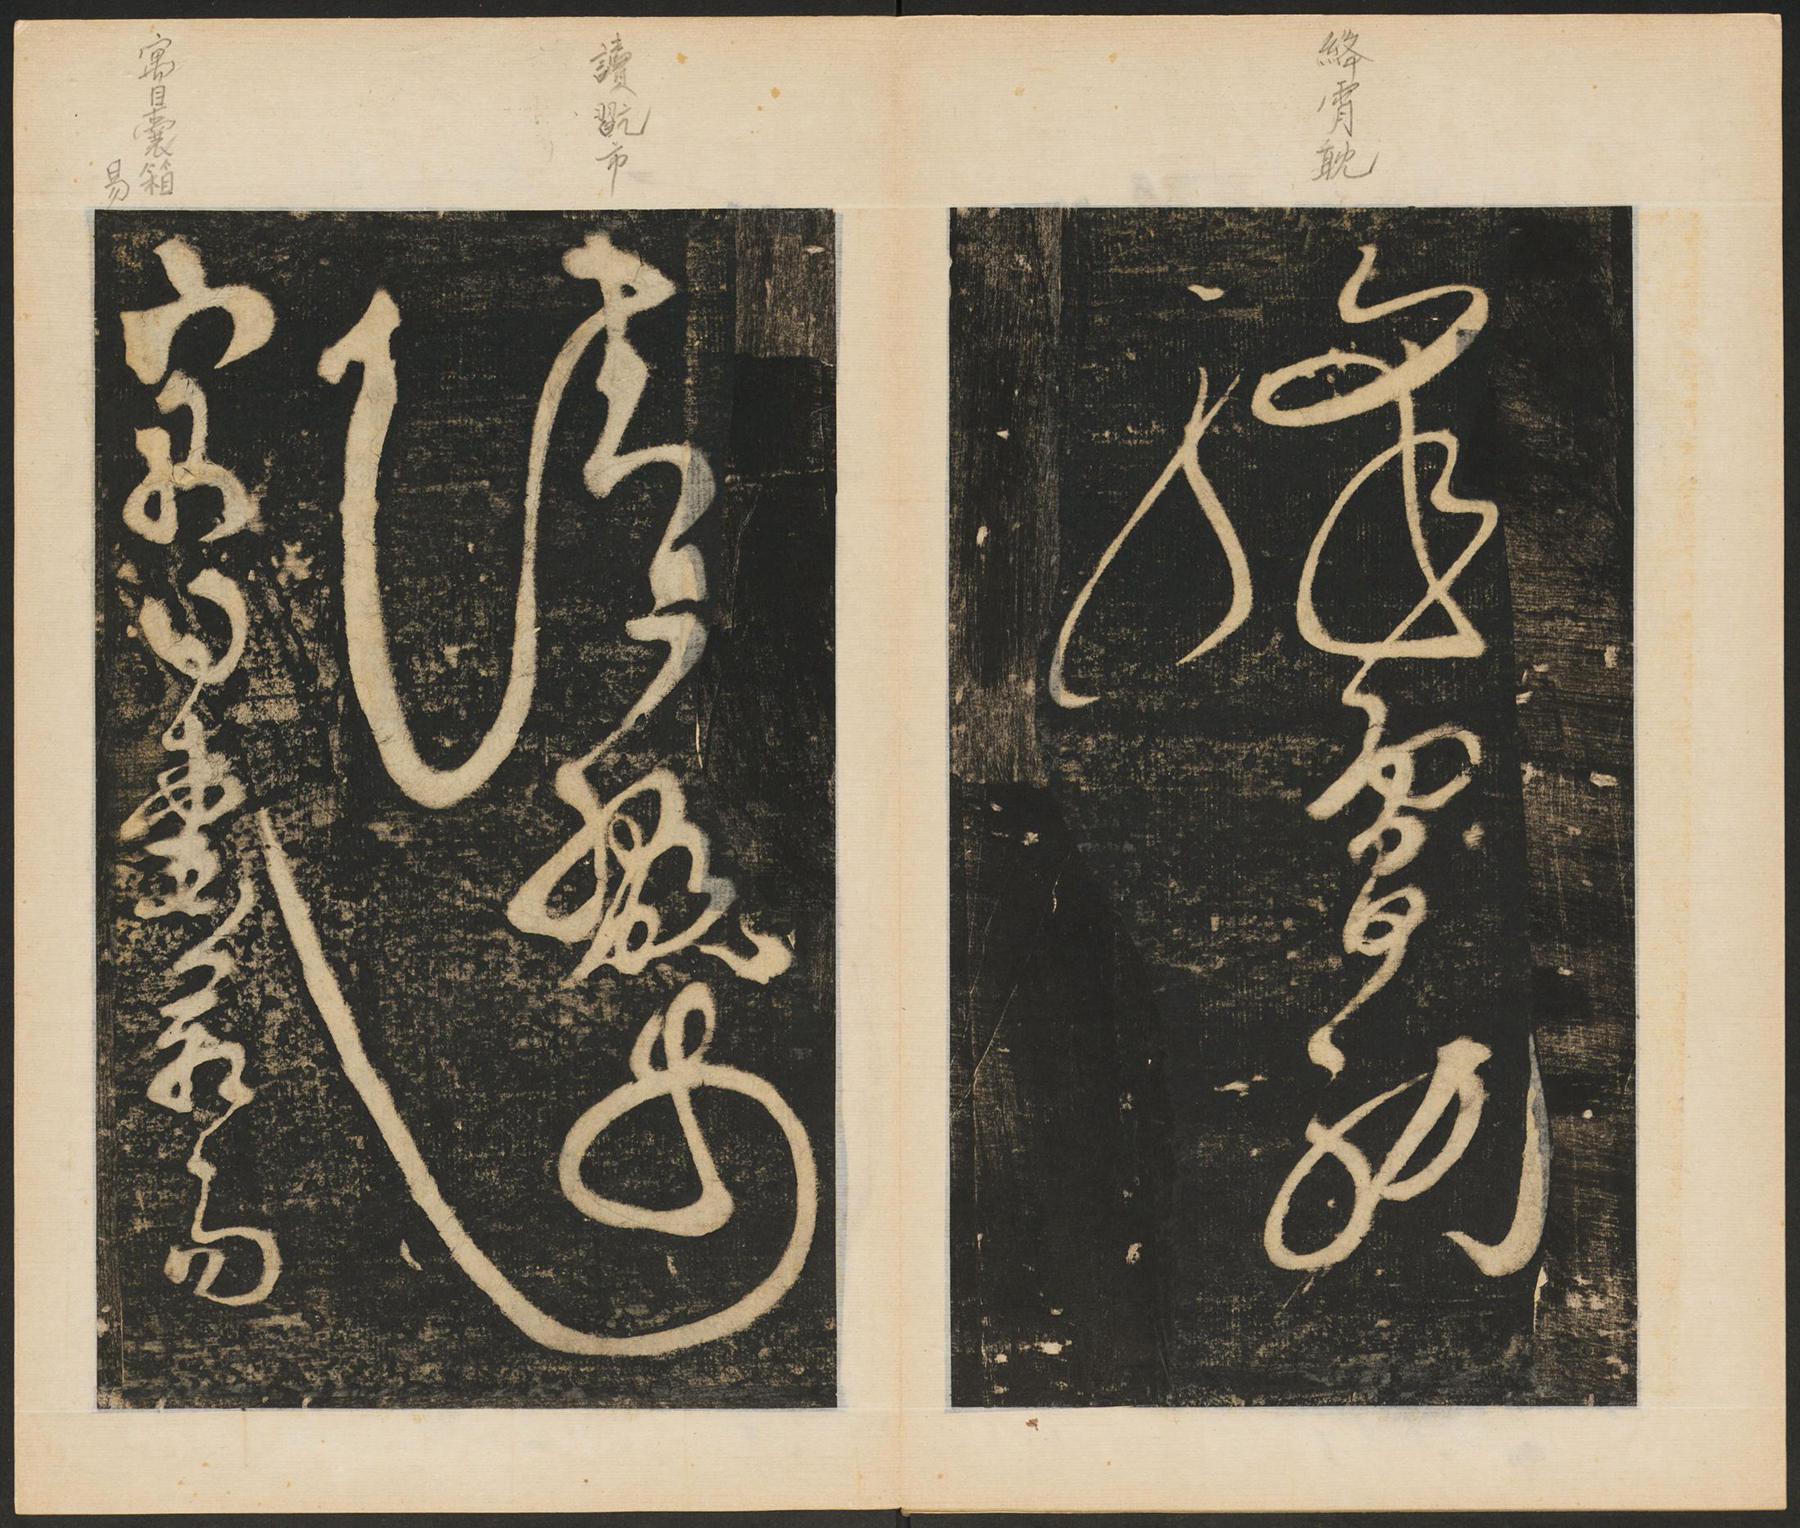 絳霄耽
絳霄耽
讀翫市
寓目囊箱
易
讀翫市
寓目囊箱易